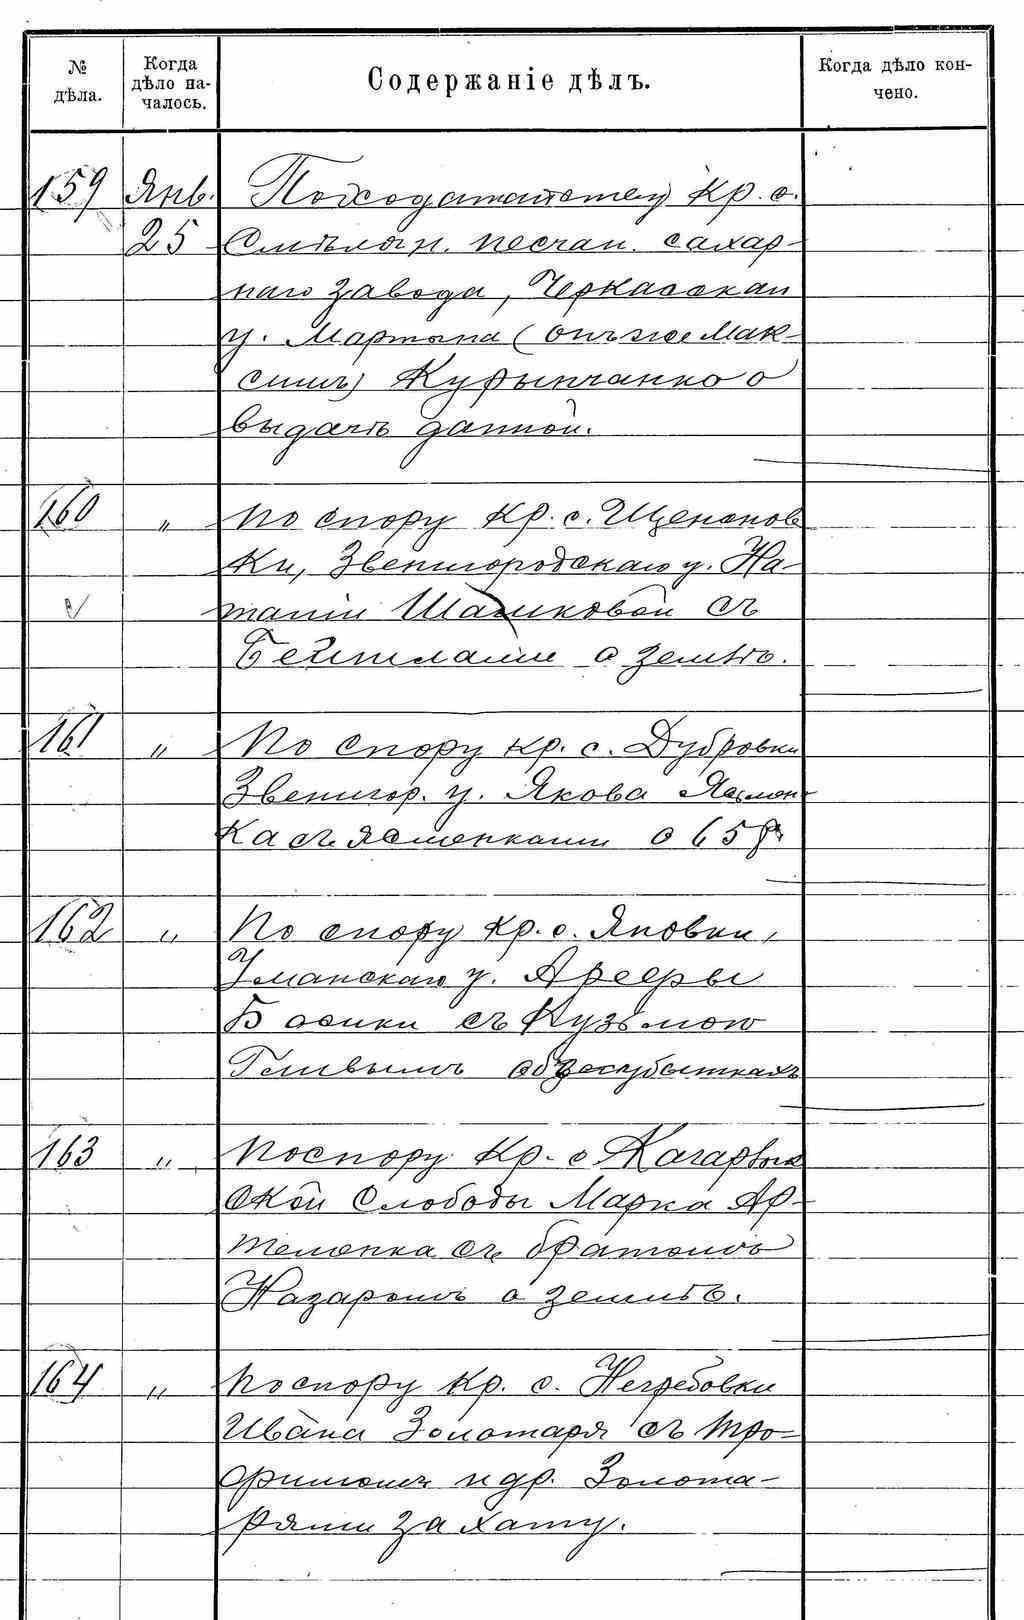 № дѣла.
Когда дѣло на-
чалось.
Содержаніе дѣлъ.
Когда дѣло кон-
чено.
159 Янв. По ходатайству кр. с.
25 Смѣлян. песчан. сахар-
наго завода, Черкасскаго
у. Мартына (онъ же Мак-
симъ) о
выдачѣ данной.
160 " По спору кр. с.
ки, Звенигородскаго у. На-
таліи съ
о землѣ.
161 " По спору кр. с. Дубровки
Звенигор. у. Якова Ясмен-
ка съ Ясменками о 65 р
162 " По спору кр. с. Яновки,
Уманскаго у.
съ Кузьмою
объ убыткахъ
163 " По спору кр. с
ской слободы Марка Ар-
теменка съ братомъ
Назаромъ о землѣ.
164 " По спору кр. с. Негребовки
Ивана Золотаря съ Тро-
фимомъ и др. Золота-
рями за хату.